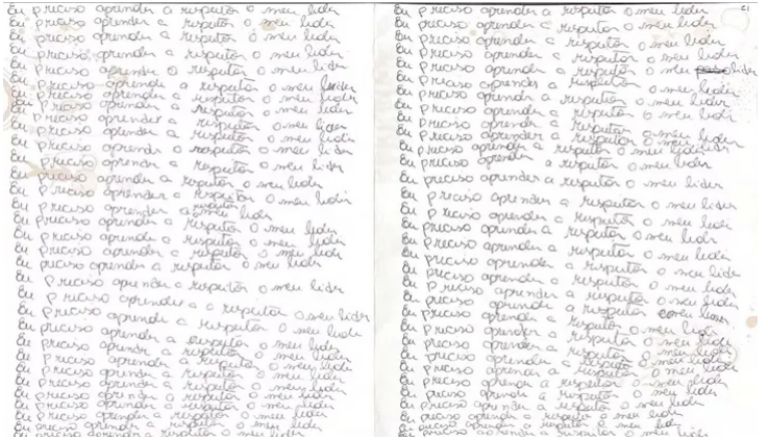 Eu preciso aprender a respeitar o meu lider
Eu preciso aprender a respeitar o meu lider
Eu preciso aprender a respeitar o meu lider
Eu preciso aprender a respeitar o meu lider
Eu preciso aprender o respeitar o meu lider
Eu preciso aprender a respeitar o meu lider
Eu preciso aprender a respeitar o meu lider
Eu preciso aprender a respeitar o meu lider
Eu preciso aprender a respeitar o meu lider
Eu preciso aprender a respeitar o meu lider
Eu preciso aprender o respeitar o meu lider
Eu preciso aprender a respeitar o meu lider
Eu preciso aprender a respeitar o meu lider
Eu preciso aprender a respeitar o meu lider
Eu preciso aprender a respeitar o meu lider
Eu preciso aprender a respeitar o meu lider
Eu preciso aprender a respeitar o meu lider
Eu preciso aprender a respeitar o meu lider
Eu preciso aprender a respeitar o meu lider
Eu preciso aprender a respeitar o meu lider
Eu preciso aprender a respeitar o meu lider
Eu preciso aprender a respeitar o meu lider
Eu preciso aprender a respeitar o meu lider
Eu preciso aprender a respeitar o meu lider
Eu preciso aprender a respeitar o meu lider
Eu preciso aprender a respeitar o meu lider
Eu preciso aprender a respeitar o meu lider
Eu preciso aprender a respeitar o meu lider
Eu preciso aprender a respeitar o meu lider
Eu preciso aprender a respeitar o meu lider
Eu preciso aprender a respeitar o meu lider
Eu preciso aprender a respeitar o meu lider
Eu preciso aprender a respeitar o meu lider
Eu preciso aprender a respeitar o meu lider
Eu preciso aprender a respeitar o meu lider
Eu preciso aprender a respeitar o meu lider
Eu preciso aprender a respeitar o meu lider
Eu preciso aprender a respeitar o meu lider
Eu preciso aprender a respeitar o meu lider
Eu preciso aprender a respeitar o meu lider
Eu preciso aprender a respeitar o meu lider
Eu preciso aprender a respeitar o meu lider
Eu preciso aprender a respeitar o meu lider
Eu preciso aprender a respeitar o meu lider
Eu preciso aprender a respeitar o meu lider
Eu preciso aprender a respeitar o meu lider
Eu preciso aprender a respeitar o meu lider
Eu preciso aprender a respeitar o meu lider
Eu preciso aprender a respeitar o meu lider
Eu preciso aprender a respeitar o meu lider
Eu preciso aprender a respeitar o meu lider
Eu preciso aprender a respeitar o meu lider
Eu preciso aprender a respeitar o meu lider
Eu preciso aprender a respeitar o meu lider
Eu preciso aprender a respeitar o meu lider
Eu preciso aprender a respeitar o meu lider
Eu preciso aprender a respeitar o meu lider
Eu preciso aprender a respeitar o meu lider
Eu preciso aprender a respeitar o meu lider
Eu preciso aprender a respeitar o meu lider
Eu preciso aprender a respeitar o meu lider
Eu preciso aprender a respeitar o meu lider